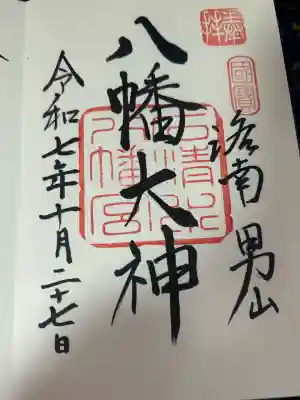 奉拝
国宝
洛南 男山
八幡大神
石清水八幡宮
令和七年十月二十七日